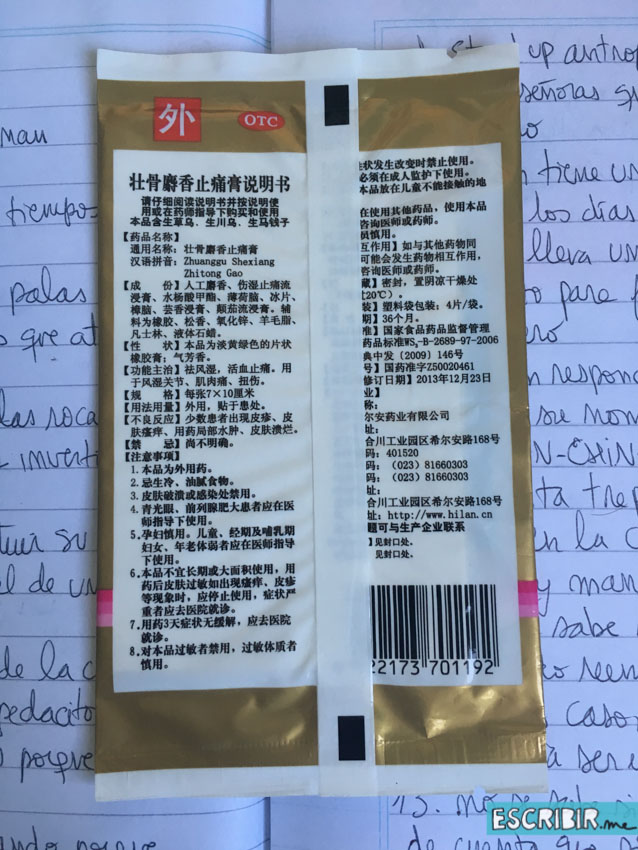 外
OTC
壮骨麝香止痛膏说明书
请仔细阅读说明书并按说明使
用或在药师指导下购买和使用
本品含生草乌、生川乌、生马钱子
【药品名称】
通用名称：壮骨麝香止痛膏
汉语拼音：Zhuanggu Shexiang
Zhitong Gao
【成 份】人工麝香、伤湿止痛流
浸膏、水杨酸甲酯、薄荷脑、冰片、
樟脑、芸香浸膏、颠茄流浸膏。辅
料为橡胶、松香、氧化锌、羊毛脂、
凡士林、液体石蜡。
【性 状】本品为淡黄绿色的片状
橡胶膏；气芳香。
【功能主治】祛风湿，活血止痛。用
于风湿关节、肌肉痛、扭伤。
【规 格】每张7×10厘米
【用法用量】外用，贴于患处。
【不良反应】少数患者出现皮疹、皮
肤瘙痒、用药局部水肿、皮肤溃烂。
【禁 忌】尚不明确。
【注意事项】
1.本品为外用药。
2.忌生冷、油腻食物。
3.皮肤破溃或感染处禁用。
4.青光眼、前列腺肥大患者应在医
师指导下使用。
5.孕妇慎用。儿童、经期及哺乳期
妇女、年老体弱者应在医师指导
下使用。
6.本品不宜长期或大面积使用，用
药后皮肤过敏如出现瘙痒、皮疹
等现象时，应停止使用，症状严
重者应去医院就诊。
7.用药3天症状无缓解，应去医院
就诊。
8.对本品过敏者禁用，过敏体质者
慎用。
状发生改变时禁止使用。
必须在成人监护下使用。
本品放在儿童不能接触的地
在使用其他药品，使用本品
咨询医师或药师。
慎用。
互作用】如与其他药物同
可能会发生药物相互作用，
咨询医师或药师。
藏】密封，置阴凉干燥处
过20℃）。
装】塑料袋包装；4片/袋。
期】36个月。
准】国家食品药品监督管理
药品标准WS₅-B-2689-97-2006
典中发〔2009〕146号
号】国药准字Z50020461
修订日期】2013年12月23日
业】
称：
尔安药业有限公司
址：
合川工业园区希尔安路168号
码：401520
码：(023) 81660303
码：(023) 81660303
址：
合川工业园区希尔安路168号
址：http://www.hilan.cn
题可与生产企业联系
】见封口处。
见封口处。
22173 701192
man
tiempos
palas
que
invert
tuir su
el de un
de la c
pedacito
porque
up antrop
señoras
tiene un
los días
lleva un
para
respond
su nom
la c
y man
sabe
caso
15. no se sabe si
de cuenta que
ESCRIBIR.me